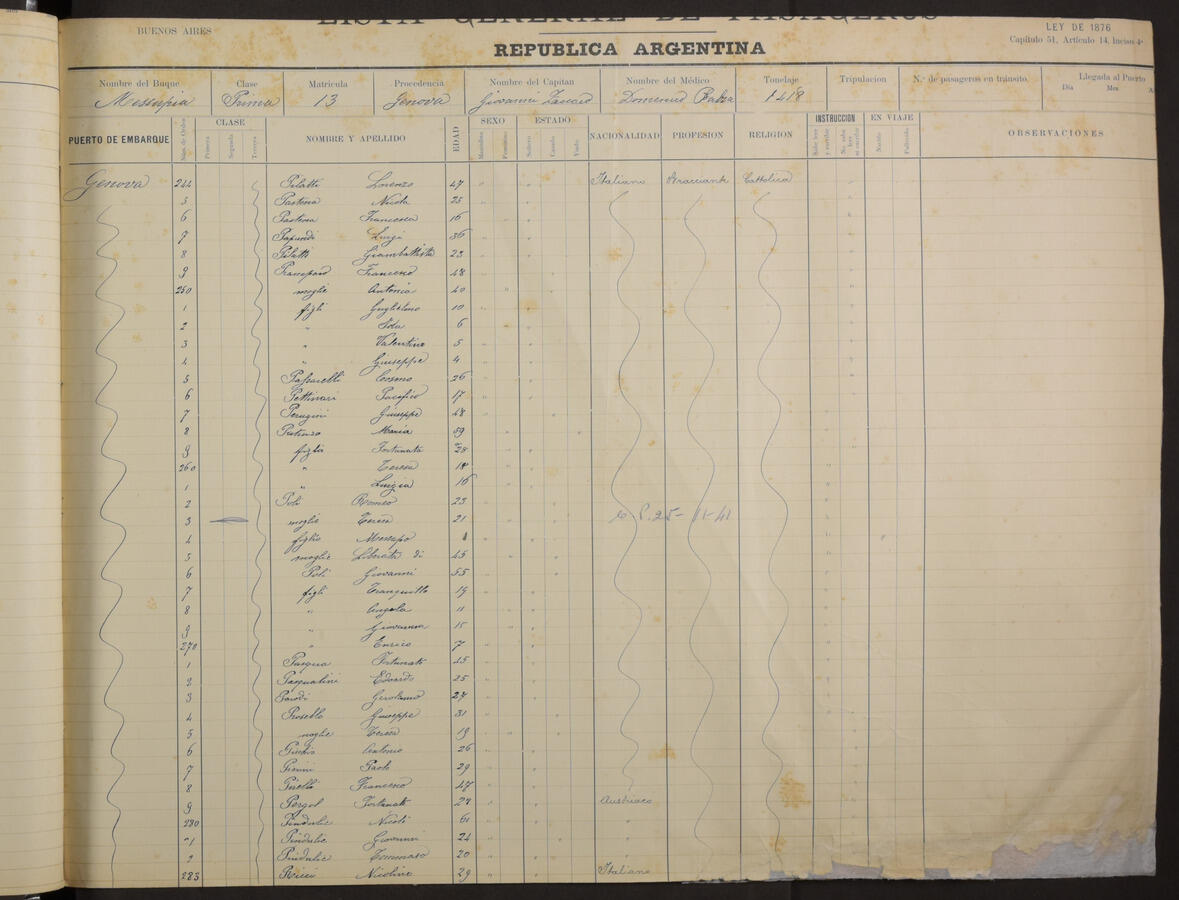 LISTA GENERAL DE PASAGEROS
BUENOS AIRES
LEY DE 1876
Capítulo 51, Artículo 14, Inciso 4º
REPUBLICA ARGENTINA
Nombre del Buque Clase Matricula Procedencia Nombre del Capitan Nombre del Médico Tonelaje Tripulacion N.º de pasageros en tránsito. Llegada al Puerto
Día Mes A
Messapia Prima 13 Genova Giovanni Domenico 1418
PUERTO DE EMBARQUE Núm. de Orden CLASE NOMBRE Y APELLIDO EDAD SEXO ESTADO NACIONALIDAD PROFESION RELIGION INSTRUCCIÓN EN VIAJE OBSERVACIONES
Primera Segunda Tercera Masculino Femenino Soltero Casado Viudo Sabe leer y escribir No sabe leer ni escribir Nacido Fallecido
Genova 244 Pilatti Lorenzo 47 " Italiano Bracciante Cattolica
5 Pastena Nicola 25
6 Pastena Francesca 16
7 Luigi 36
8 Pilatti Giambattista 23
9 Francesco 48
250 moglie Antonia 40
1 figli Guglielmo 10
2 " Ida 6
3 " Valentino 5
4 " Giuseppe 4
5 Passarelli Cosmo 26
6 Pettinari Pacifico 17
7 Perugini Giuseppe 48
8 Maria 59
9 figlia Fortunata 28
260 " Teresa 18
1 " Luigia 16
2 Poli Romeo 23
3 moglie Teresa 21
4 figlio
5 moglie Liberata di 45
6 Poli Giovanni 55
7 figli Tranquillo 19
8 " Angela 11
9 " Giovanna 15
270 " Enrico 7
1 Pasqua Fortunato
2 Pasqualini Edoardo 25
3 Parodi Gerolamo 27
4 Rosello Giuseppe 31
5 moglie Teresa 19
6 Antonio 26
7 Pierini Paolo 29
8 Pirelli Francesco 47
9 Pergol Fortunato 27 Austriaco
280 Pindulic Nicolò 61
1 Pindulic Giovanni 24
2 Pindulic Tommaso 20
283 Ricci Nicolino 29 Italiano